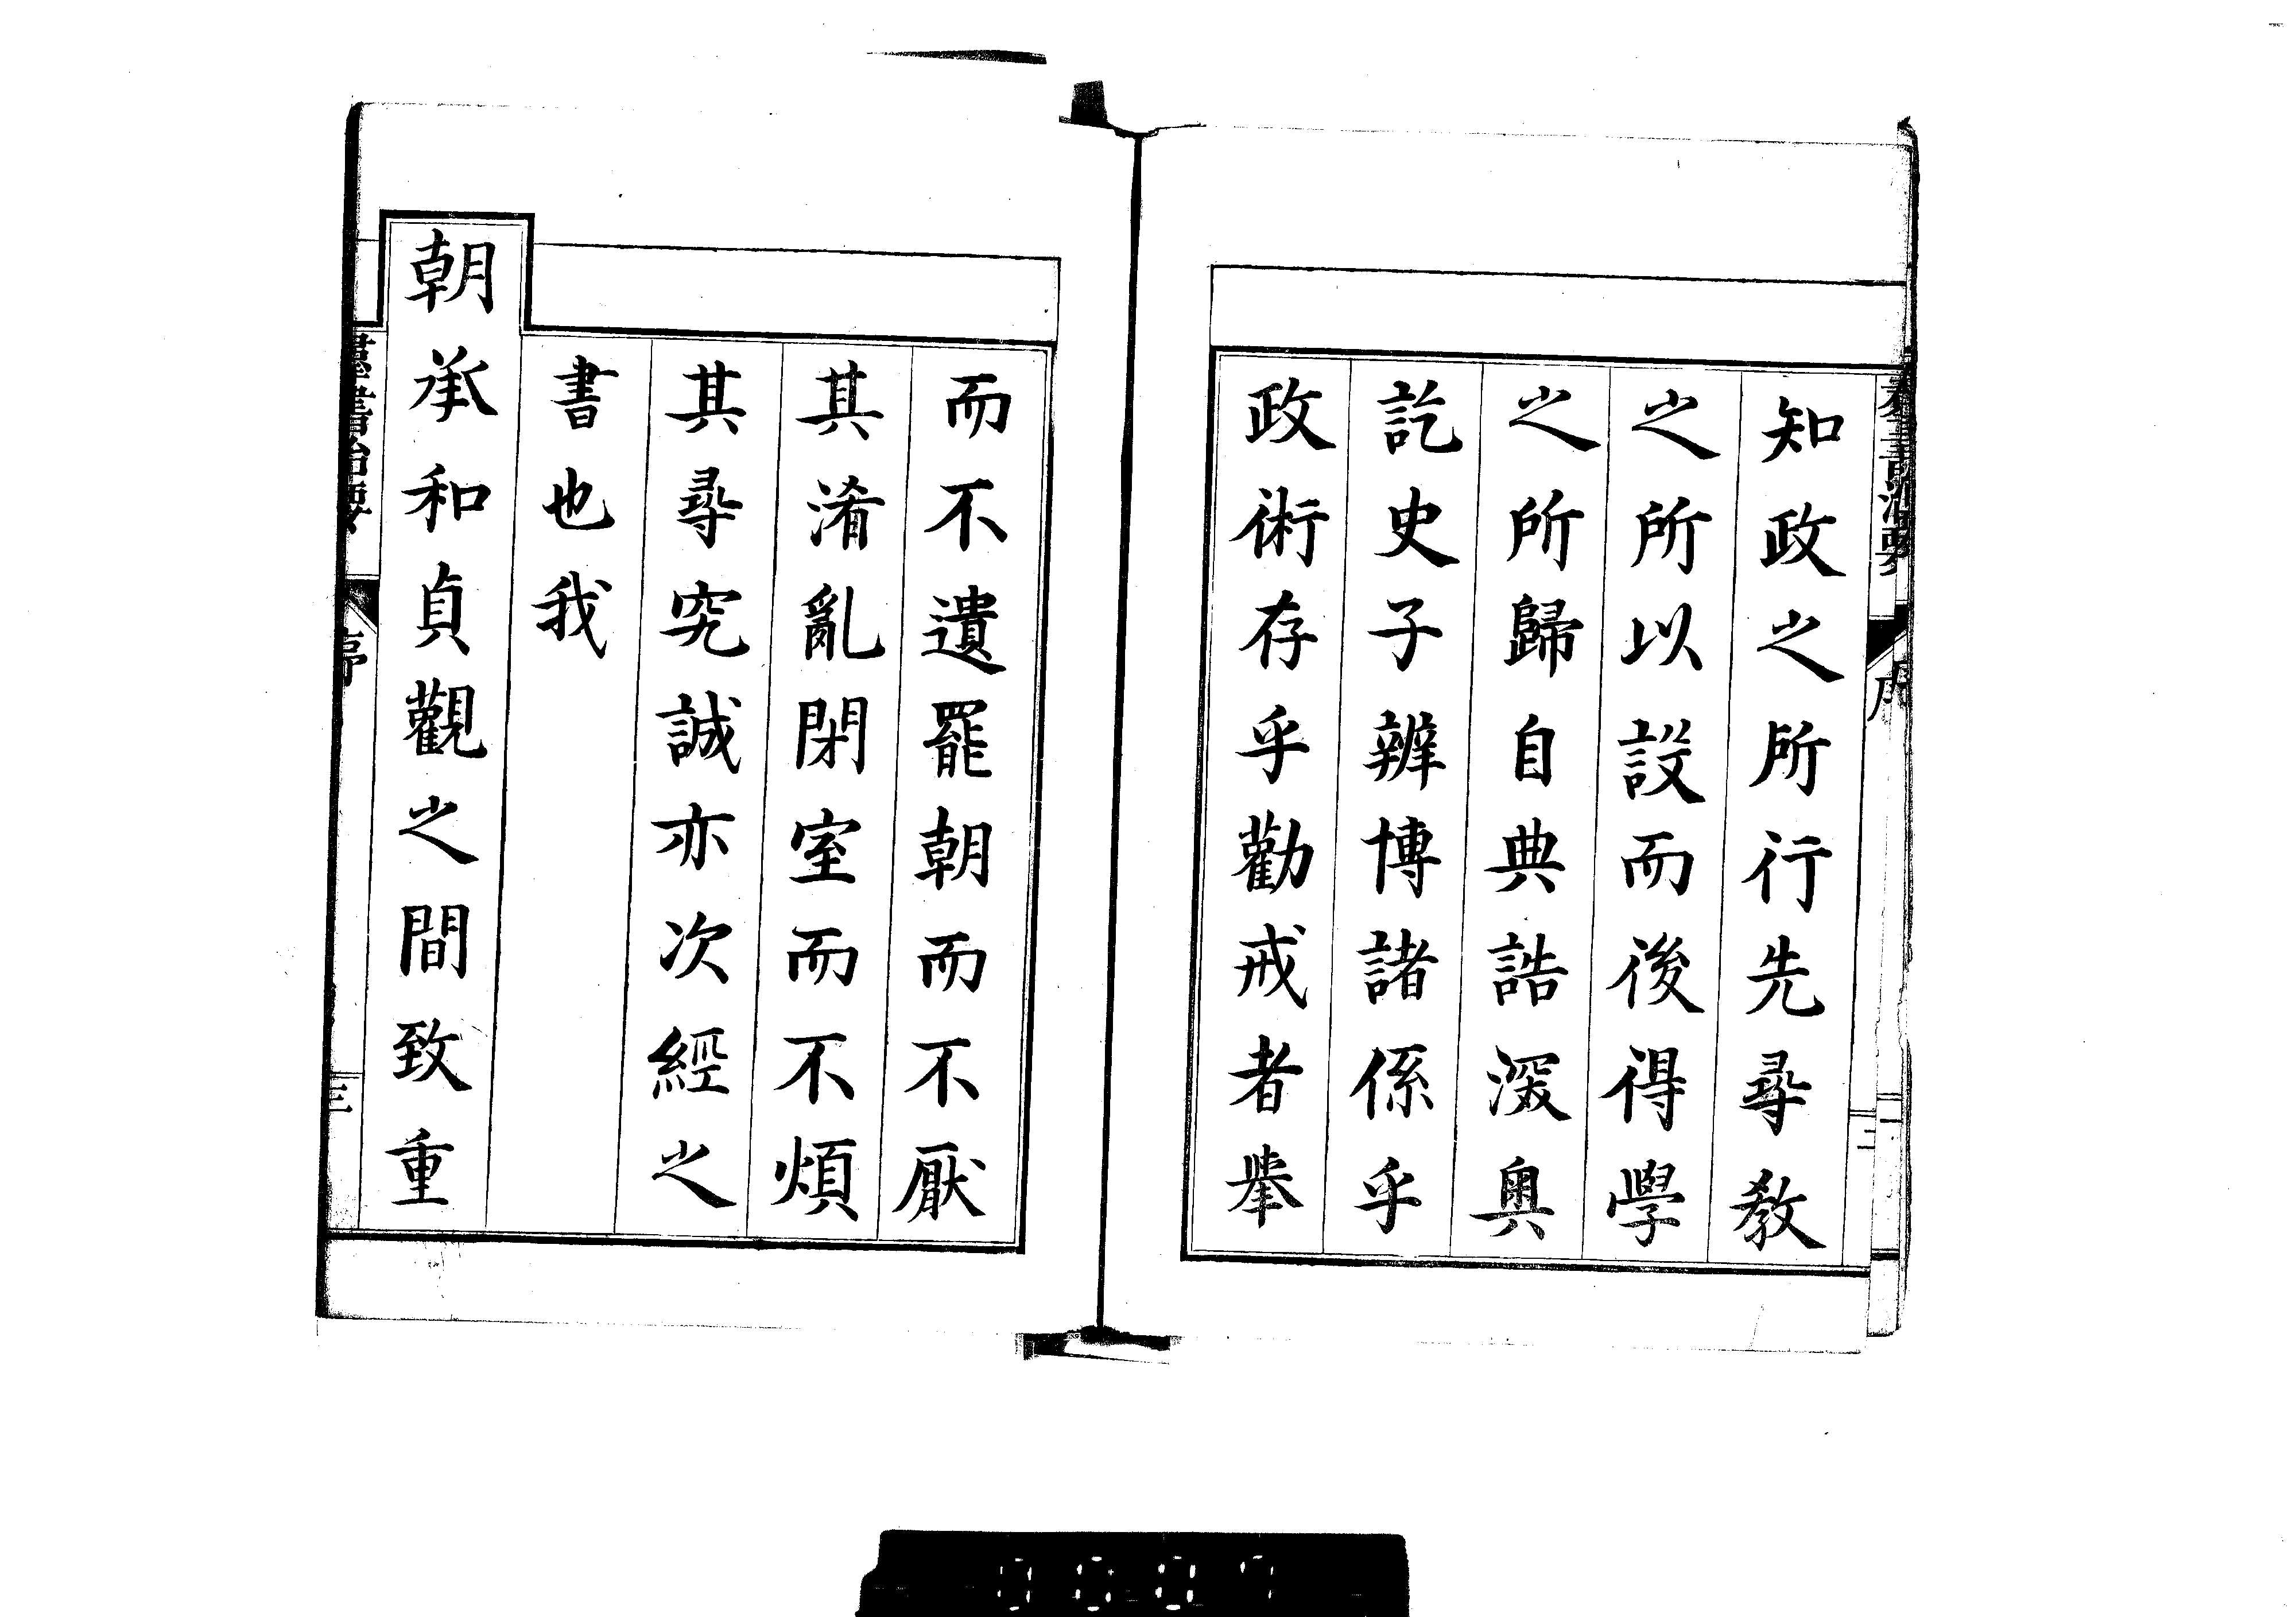 知政之所行先尋教
之所以設而後得學
之所歸自典誥深奥
訖史子辨博諸係乎
政術存乎勸戒者擧
而不遺罷朝而不厭
其淆亂閉室而不煩
其尋究誠亦次經之
書也我
朝承和貞觀之間致重
羣書治要
序
三